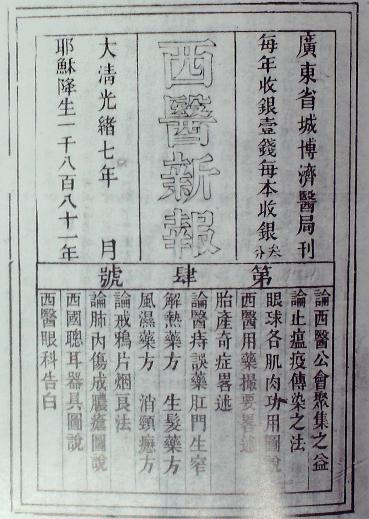 廣東省城博濟醫局刊
每年收銀壹錢每本收銀
西醫新報
大清光緒七年 月
耶穌降生一千八百八十一年
第肆號
論西醫公會聚集之益
論止瘟疫傳染之法
眼球各肌肉功用圖說
西醫用藥撮要畧述
胎產奇症畧述
論醫痔誤藥肛門生窄
解熱藥方 生髮藥方
風濕藥方 消頸癧方
論戒鴉片烟良法
論肺內傷成膿瘡圖說
西國聰耳器具圖說
西醫眼科告白